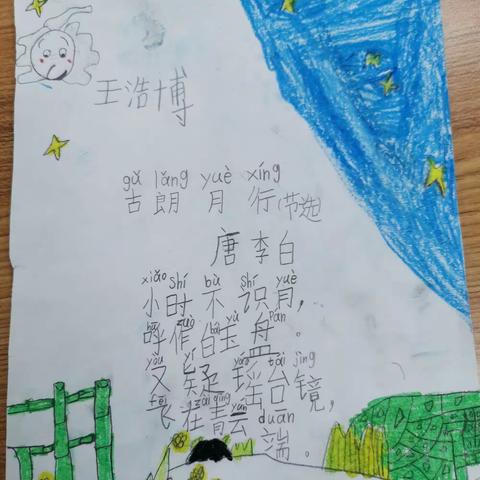 王浩博
gǔ lǎng yuè xíng
古朗月行(节选)
唐 李白
xiǎo shí bù shí yuè
小时不识月,
zuò bái yù pán
呼作白玉盘。
yòu yí yáo tái jìng
又疑瑶台镜,
zài qīng yún duān
在青云端。